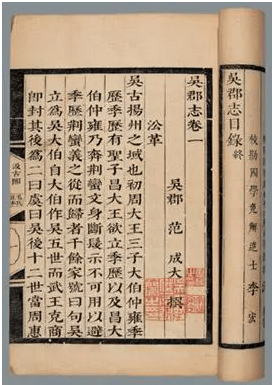 校勘國學免解進士李宏
吳郡志目錄 終
吳郡志卷一
吳郡 范 成大 撰
沿革
吳古揚州之域也初周大王三子大伯仲雍季
歷季歷有聖子昌大王欲立季歷以及昌大
伯仲雍乃奔荆蠻文身斷髮示不可用以避
季歷荆蠻義之從而歸者千餘家號曰句吳
立爲吳大伯自大伯作吳五世而武王克商
即封其後爲二曰虞曰吳後十二世當周惠
汲古閣